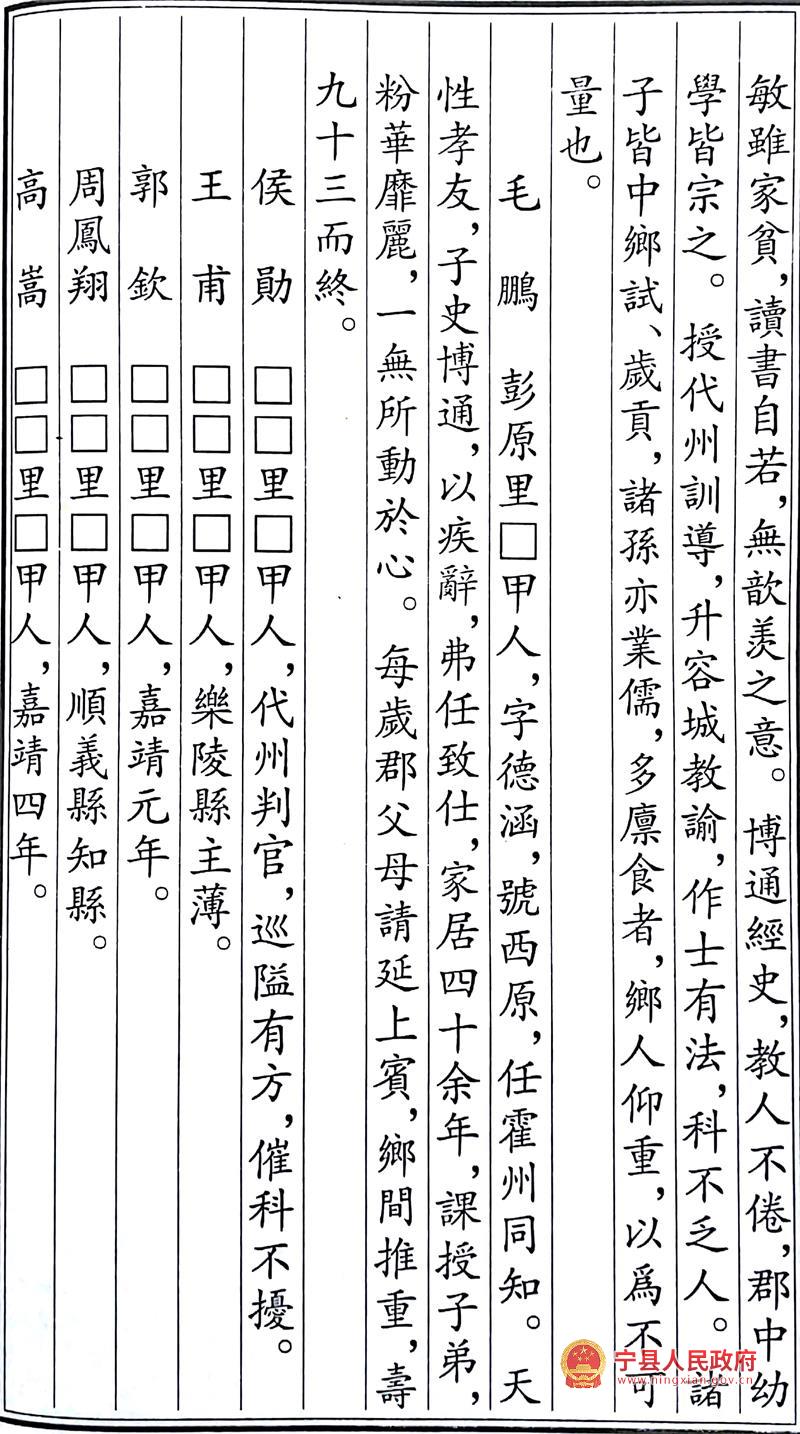 敏雖家貧，讀書自若，無歆羨之意。博通經史，教人不倦，郡中幼
學皆宗之。授代州訓導，升容城教諭，作士有法，科不乏人。諸
子皆中鄉試、歲貢，諸孫亦業儒，多廪食者，鄉人仰重，以爲不可
量也。
毛鵬 彭原里□甲人，字德涵，號西原，任霍州同知。天
性孝友，子史博通，以疾辭，弗任致仕，家居四十余年，課授子弟，
粉華靡麗，一無所動於心。每歲郡父母請延上賓，鄉間推重，壽
九十三而終。
侯勛 □□里□甲人，代州判官，巡隘有方，催科不擾。
王甫 □□里□甲人，樂陵縣主薄。
郭欽 □□里□甲人，嘉靖元年。
周鳳翔 □□里□甲人，順義縣知縣。
高嵩 □□里□甲人，嘉靖四年。
宁县人民政府
www.ningxian.gov.cn